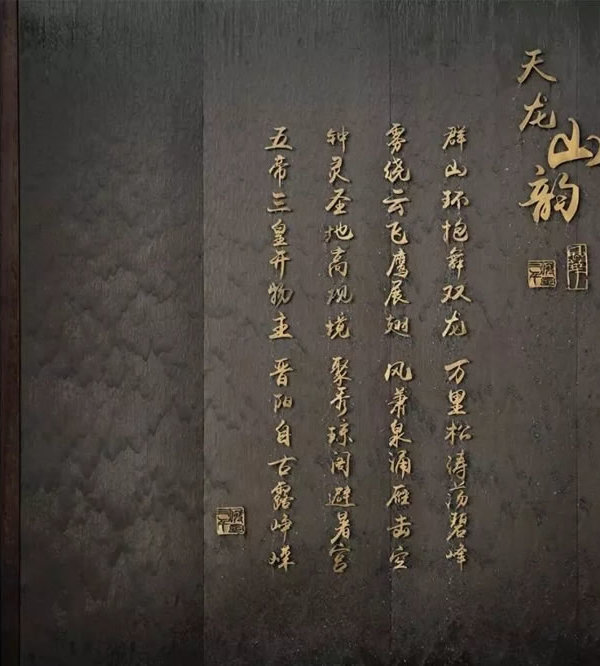 天龙山韵
群山环抱舞双龙 万里松涛荡碧峰
雾绕云飞鹰展翅 风萧泉涌雁击空
钟灵圣地高现境 聚秀琼阁避暑宫
五帝三皇开物主 晋阳自古露峥嵘